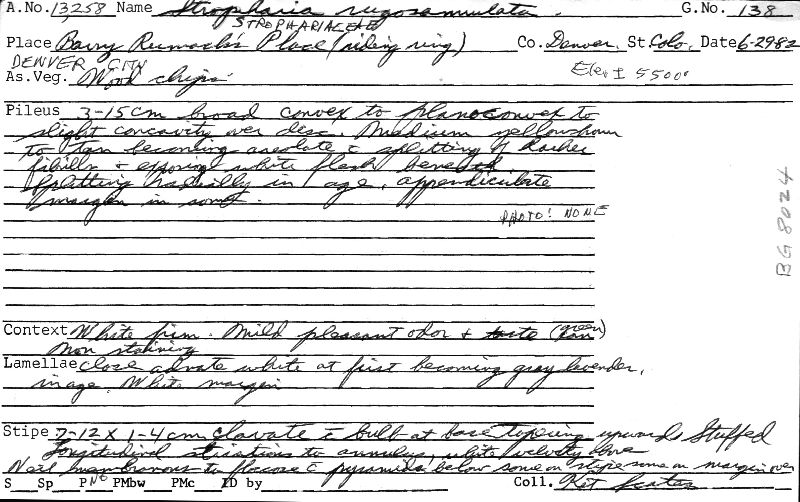 A.No. 13,258 Name Stropharia rugosannulata. G.No. 138
STROPHARIACEAE
Place Barry Rumack's Place (riding ring) Co. Denver, St. Colo, Date 6-29-82
DENVER CITY
As.Veg. Wood chips. Elev ± 5500'
Pileus 3-15 cm broad convex to planoconvex to
slight concavity over disc. Medium yellow brown
to tan becoming areolate c splitting of darker
fibrills + exposing white flesh beneath
Splitting radially in age, appendiculate
margin in some.
PHOTO: NONE
BG 8024
Context White firm. Mild pleasant odor + taste (green)
Non staining
Lamellae close adnate white at first becoming gray lavender,
in age. White margin
Stipe 7-12 x 1-4 cm clavate c bulb at base tapering upwards Stuffed
Longitudinal striations to annulus, white velvety
Veil membranous to floccose c pyramids below some on stipe some on margin over
S Sp P NO PMbw PMc ID by Coll. Kit Scates